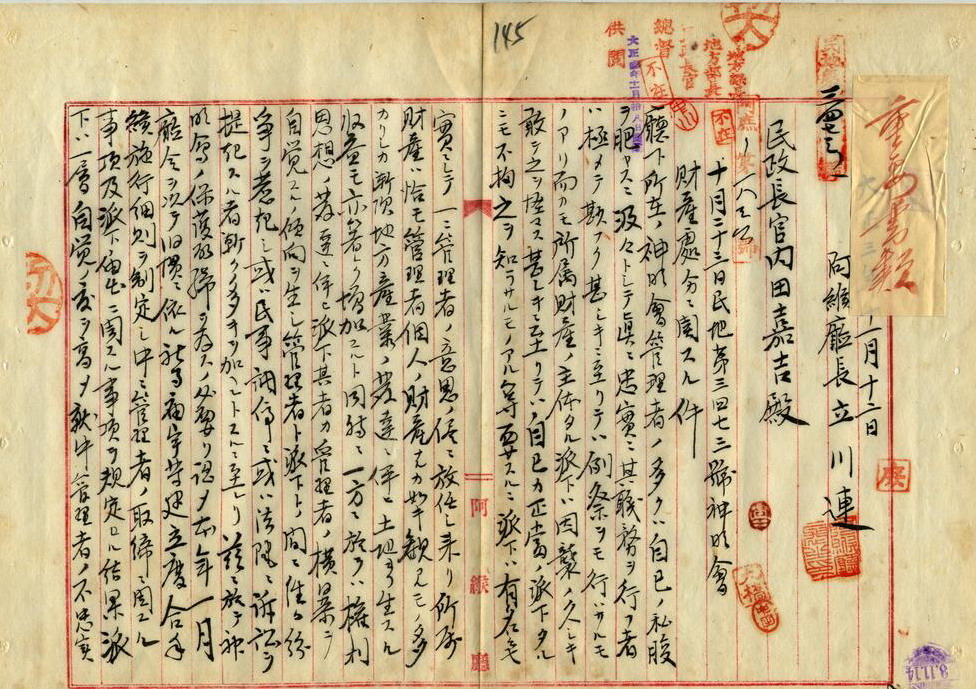 145
供閲
總督
不在
民政長官
地方部長
不在
三四七三ノ一
十一月十二日
阿緱廳長立川連
民政長官内田嘉吉殿
十月二十三日民地第三四七三號神明會
財産處分ニ関スル件
廳下所在ノ神明會管理者ノ多クハ自己ノ私腹
ヲ肥ヤスニ汲々トシテ眞ニ忠實ニ其職務ヲ行フ者
ハ極メテ尠ク甚シキニ至リテハ例祭ヲモ行ハサルモ
ノアリ而カモ所属財産ノ主体タル派下ハ因襲ノ久シキ
敢テ之ヲ怪マス甚シキニ至リテハ自己カ正當ノ派下タル
ニモ不拘之ヲ知ラサルモノアル等要スルニ派下ハ有名無
實ニシテ一ニ管理者ノ意思ノ儘ニ放任シ来リ所属
財産ハ恰モ管理者個人ノ財産カ如キ観アルモノ多
カリシカ漸次地方産業ノ発達ニ伴ヒ土地ヨリ生スル
収益モ亦著シク増加スルト同時ニ一方ニ於テハ権利
思想ノ発達ニ伴ヒ派下其者カ管理者ノ横暴ヲ
自覚スル傾向ヲ生シ管理者ト派下トノ間ニ往々紛
争ヲ惹起シ或ハ民事訴訟ニ或ハ法院ニ訴訟ヲ
提起スル者漸ク多キヲ加ヘントスルニ至レリ茲ニ於テ神
明會ノ保護取締ヲ為スノ必要ヲ認メ本年一月
廳令ヲ以テ旧慣ニ依ル祠廟寺宇等建立廃合手
續施行細則ヲ制定シ中ニ管理者ノ取締ニ関スル
事項及派下届出ニ関スル事項ヲ規定シタル結果派
下ハ一層自覚ノ度ヲ高メ就中管理者ノ不忠實
阿緱廳